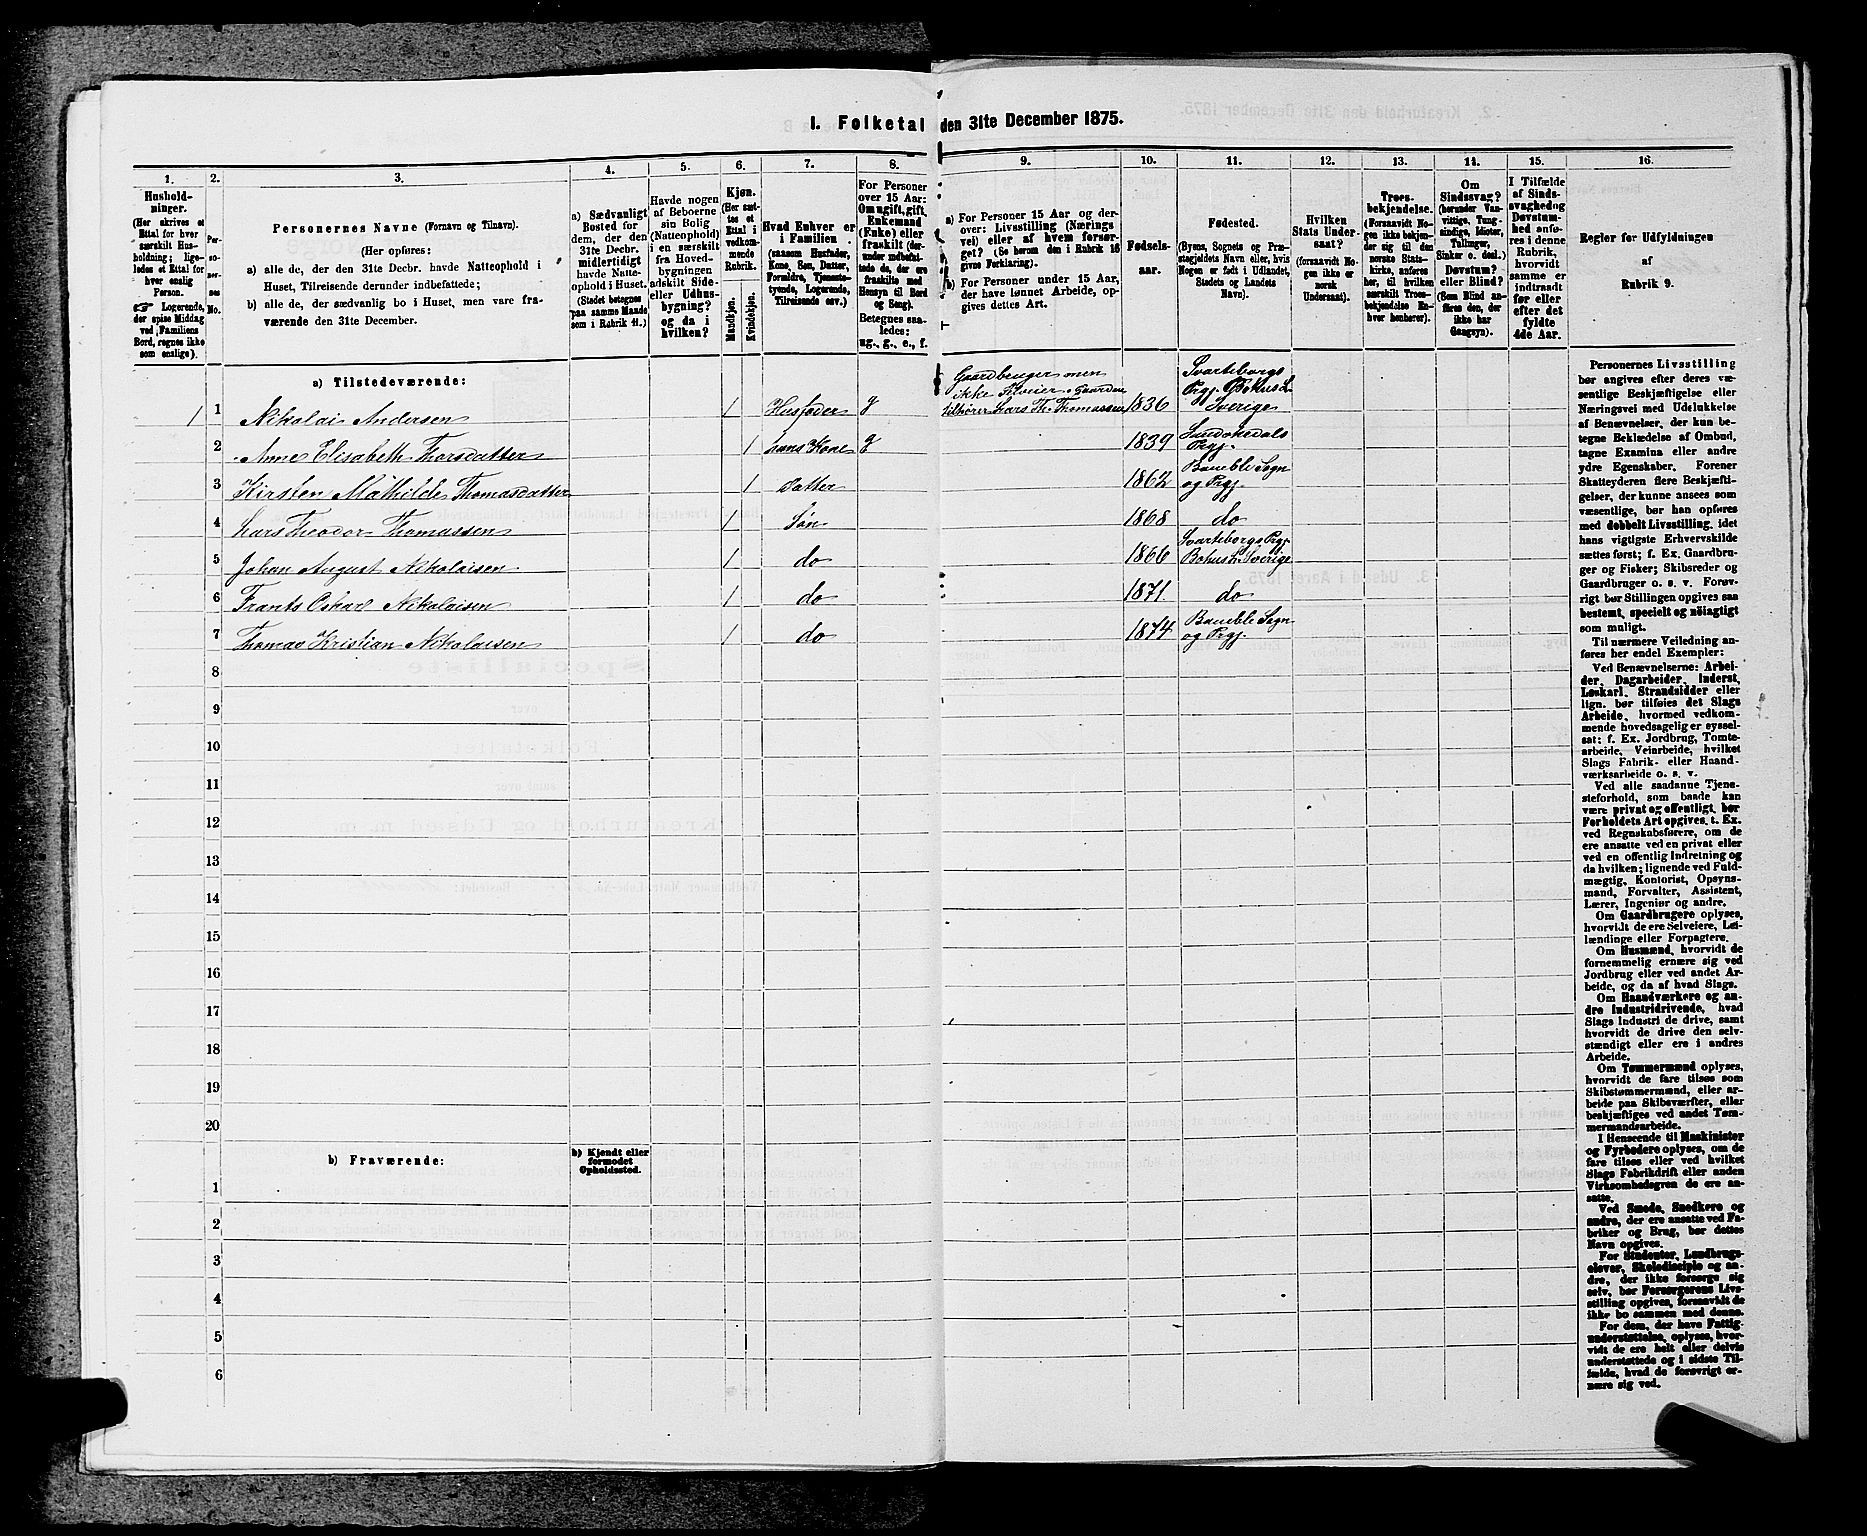 I. Folketal den 31te December 1875.
1. 2. 3. 4. 5. 6. 7. 8. 9. 10. 11. 12. 13. 14. 15. 16.
Hushold-
ninger.
(Her skrives et
Ettal for hver
særskilt Hus-
holdning; lige-
ledes et Ettal for
hver enslig
Person.
☞ Logerende,
der spise Middag
ved Familiens
Bord, regnes ikke
som enslige).
Per-
soner-
nes
No.
Personernes Navne (Fornavn og Tilnavn).
(Her opføres:
a) alle de, der den 31te Decbr. havde Natteophold i
Huset, Tilreisende derunder indbefattede;
b) alle de, der sædvanlig bo i Huset, men vare fra-
værende den 31te December.
a) Sædvanligt
Bosted for
dem, der den
31te Decbr.
midlertidigt
havde Natte-
ophold i Huset.
(Stedet betegnes
paa samme Maade
som i Rubrik 11.)
Havde nogen
af Beboerne
sin Bolig
(Natteophold)
i en særskilt
fra Hoved-
bygningen
adskilt Side-
eller Udhus-
bygning?
og da i
hvilken?
Kjøn.
(Her sæt-
tes et
Ettal i
vedkom-
mende
Rubrik.
Mandkjøn.
Kvindekjøn.
Hvad Enhver er
i Familien
(saasom Husfader,
Kone, Søn, Datter,
Forældre, Tjeneste-
tyende, Logerende,
Tilreisende osv.)
For Personer
over 15 Aar:
Om ugift, gift,
Enkemand
(Enke) eller
fraskilt (der-
under indbefat-
tede de, der ere
fraskilte med
Hensyn til Bord
og Seng).
Betegnes saa-
ledes:
ug., g., e., f.
a) For Personer 15 Aar og der-
over: Livsstilling (Nærings
vei) eller af hvem forsør-
get? (Se herom den i Rubrik 16
givne Forklaring).
b) For Personer under 15 Aar,
der have lønnet Arbeide, op-
gives dettes Art.
Fødsels-
aar.
Fødested.
(Byens, Sognets og Præ-
stegjeldets Navn eller, hvis
Nogen er født i Udlandet,
Stedets og Landets
Navn).
Hvilken
Stats Under-
saat?
(forsaavidt No-
gen ikke er
norsk
Undersaat).
Troes-
bekjendelse.
(Forsaavidt No-
gen ikke bekjen-
der sig til den
norske Stats-
kirke, anføres
her, til hvilken
særskilt Troes-
bekjendelse En-
hver henhører).
Om
Sindssvag?
(herunder Van-
vittige, Tung-
sindige, Idioter,
Tullinger,
Sinker o. desl.)
Døvstum?
eller Blind?
(Som Blind an-
føres den, der
ikke har
Gangsyn).
I Tilfælde
af Sinds-
svaghed og
Døvstum-
hed anfø-
res i denne
Rubrik,
hvorvidt
samme er
indtraadt
før eller
efter det
fyldte
4de Aar.
Regler for Udfyldningen
af
Rubrik 9.
a) Tilstedeværende:
1 1 Nikolai Andersen 1 Husfader g Gaardbruger men
ikke Selveier. Gaarden
tilhører Lars Th. Thomassen 1836 Svarteborgs
Prgj. Bohus L.
Sverige
2 Anne Elisabeth Thorsdatter 1 hans Kone g 1839
Prgj.
3 Kirsten Mathilde Thomasdatter 1 Datter 1862 Bamble Sogn
og Prgj.
4 Lars Theodor Thomassen 1 Søn 1868 do
5 Johan August Nikolaisen 1 do 1866 Svarteborgs Prgj.
Bohus L. Sverige
6 Frants Oskar Nikolaisen 1 do 1871. do
7 Thomas Kristian Nikolaisen 1 do 1874 Bamble Sogn
og Prgj.
8
9
10
11
12
13
14
15
16
17
18
19
20
b) Fraværende:
b) Kjendt eller
formodet
Opholdssted.
1
2
3
4
5
6
Personernes Livsstilling
bør angives efter deres væ-
sentlige Beskjæftigelse eller
Næringsvei med Udelukkelse
af Benævnelser, der kun be-
tegne Beklædelse af Ombud,
tagne Examina eller andre
ydre Egenskaber. Forener
Skatteyderen flere Beskjæfti-
gelser, der kunne ansees som
væsentlige, bør han opføres
med dobbelt Livsstilling, idet
hans vigtigste Erhvervskilde
sættes først; f. Ex. Gaardbru-
ger og Fisker; Skibsreder og
Gaardbruger o. s. v. Forøv-
rigt bør Stillingen opgives saa
bestemt, specielt og nøiagtigt
som muligt.
Til nærmere Veiledning an-
føres her endel Exempler:
Ved Benævnelserne: Arbei-
der, Dagarbeider, Inderst,
Løskarl, Strandsidder eller
lign. bør tilføies det Slags
Arbeide, hvormed vedkom-
mende hovedsagelig er syssel-
sat; f. Ex. Jordbrug, Tomte-
arbeide, Veiarbeide, hvilket
Slags Fabrik- eller Haand-
værksarbeide o. s. v.
Ved alle saadanne Tjene-
steforhold, som baade kan
være privat og offentligt, bør
Forholdets Art opgives, t. Ex.
ved Regnskabsførere, om de
ere ansatte ved en privat eller
ved en offentlig Indretning og
da hvilken; lignende ved Fuld-
mægtig, Kontorist, Opsyns-
mand, Forvalter, Assistent,
Lærer, Ingeniør og andre.
Om Gaardbrugere oplyses,
hvorvidt de ere Selveiere, Lei-
lændinge eller Forpagtere.
Om Husmænd, hvorvidt de
fornemmelig ernære sig ved
Jordbrug eller ved andet Ar-
beide, og da af hvad Slags.
Om Haandværkere og an-
dre Industridrivende, hvad
Slags Industri de drive, samt
hvorvidt de drive den selv-
stændigt eller ere i andres
Arbeide.
Om Tømmermænd oplyses,
hvorvidt de fare tilsøs som
Skibstømmermænd, eller ar-
beide paa Skibsværfter, eller
beskjæftiges ved andet Tøm-
mermandsarbeide.
I Henseende til Maskinister
og Fyrbødere oplyses, om de
fare tilsøs eller ved hvilket
Slags Fabrikdrift eller anden
Virksomhedsgren de ere an-
satte.
Ved Smede, Snedkere og
andre, der ere ansatte ved Fa-
briker og Brug, bør dettes
Navn opgives.
For Studenter, Landbrugs-
elever, Skoledisciple og an-
dre, der ikke forsørge sig
selv, bør Forsørgerens Livs-
stilling opgives, forsaavidt de
ikke bo sammen med denne.
For dem, der have Fattig-
understøttelse, oplyses, hvor-
vidt de ere helt eller delvis
understøttede og i sidste Til-
fælde, hvad de forøvrigt er-
nære sig ved.